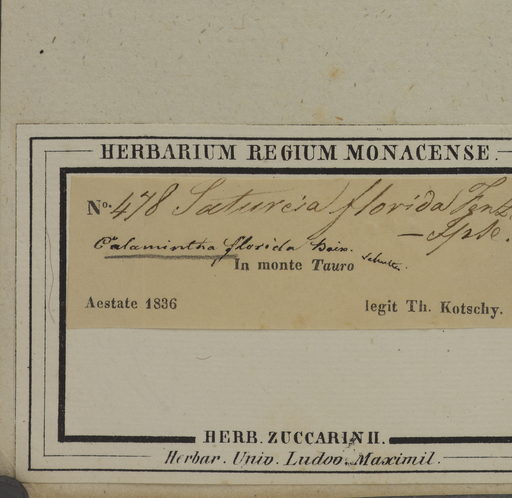 HERBARIUM REGIUM MONACENSE.
No. 478 Satureia florida
Calamintha florida Boiss.
In monte Tauro
Aestate 1836 legit Th. Kotschy.
HERB. ZUCCARINII.
Herbar. Univ. Ludov. Maximil.